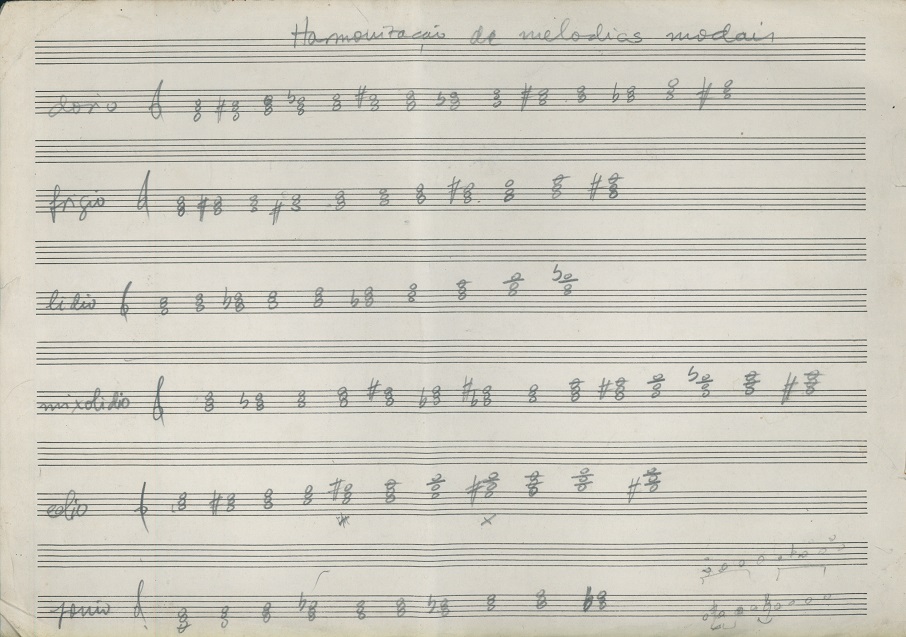 Harmonização de melodias modais
dorio
frigio
lidio
mixolidio
eolio
jonio